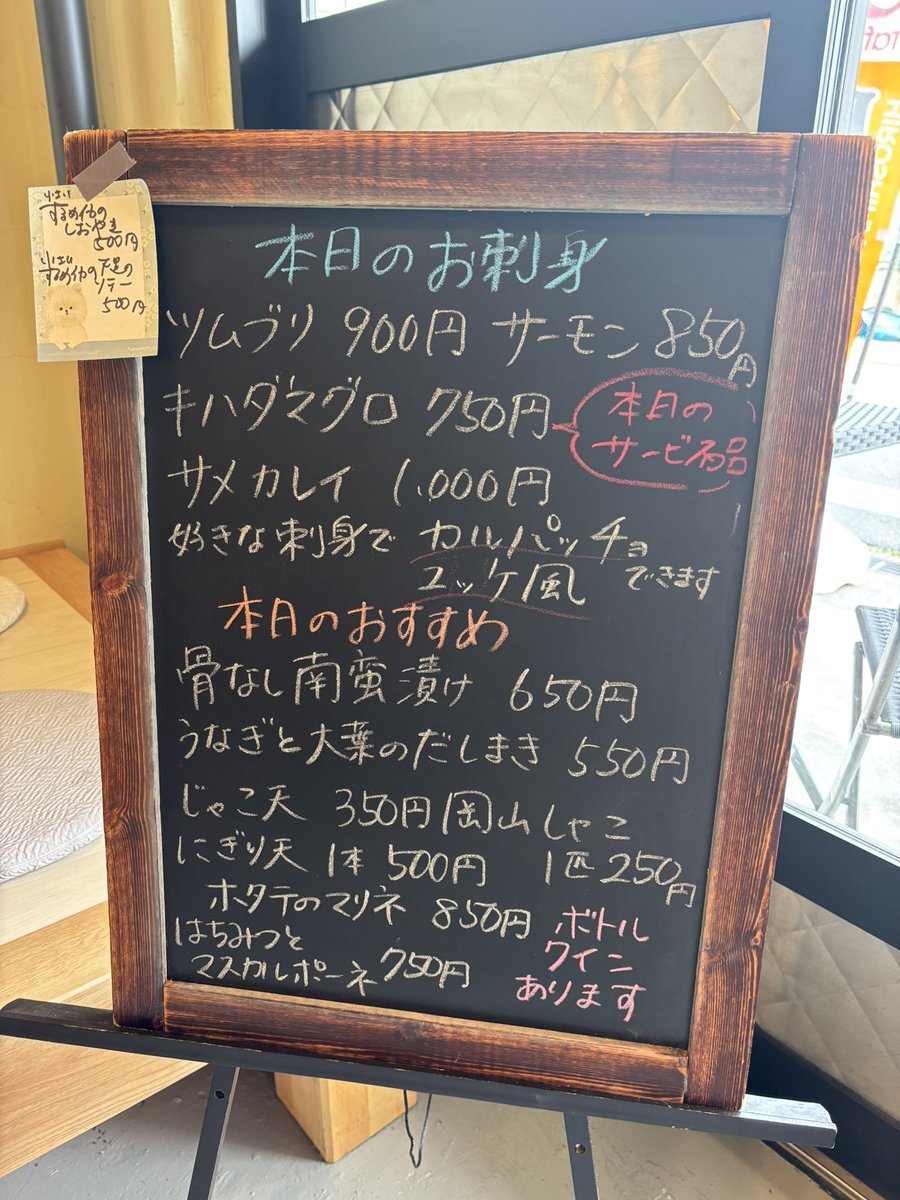 するめイカの
しおやき
500円
するめイカの下足の
ソテー
500円
本日のお刺身
ツムブリ 900円 サーモン 850円
キハダマグロ 750円 本日の
サービス品
サメカレイ 1,000円
好きな刺身で カルパッチョ
ユッケ風 できます
本日のおすすめ
骨なし南蛮漬け 650円
うなぎと大葉のだしまき 550円
じゃこ天 350円 岡山しゃこ
にぎり天 1本 500円 1匹 250円
ホタテのマリネ 850円
はちみつと
マスカルポーネ 750円
ボトル
ワイン
あります